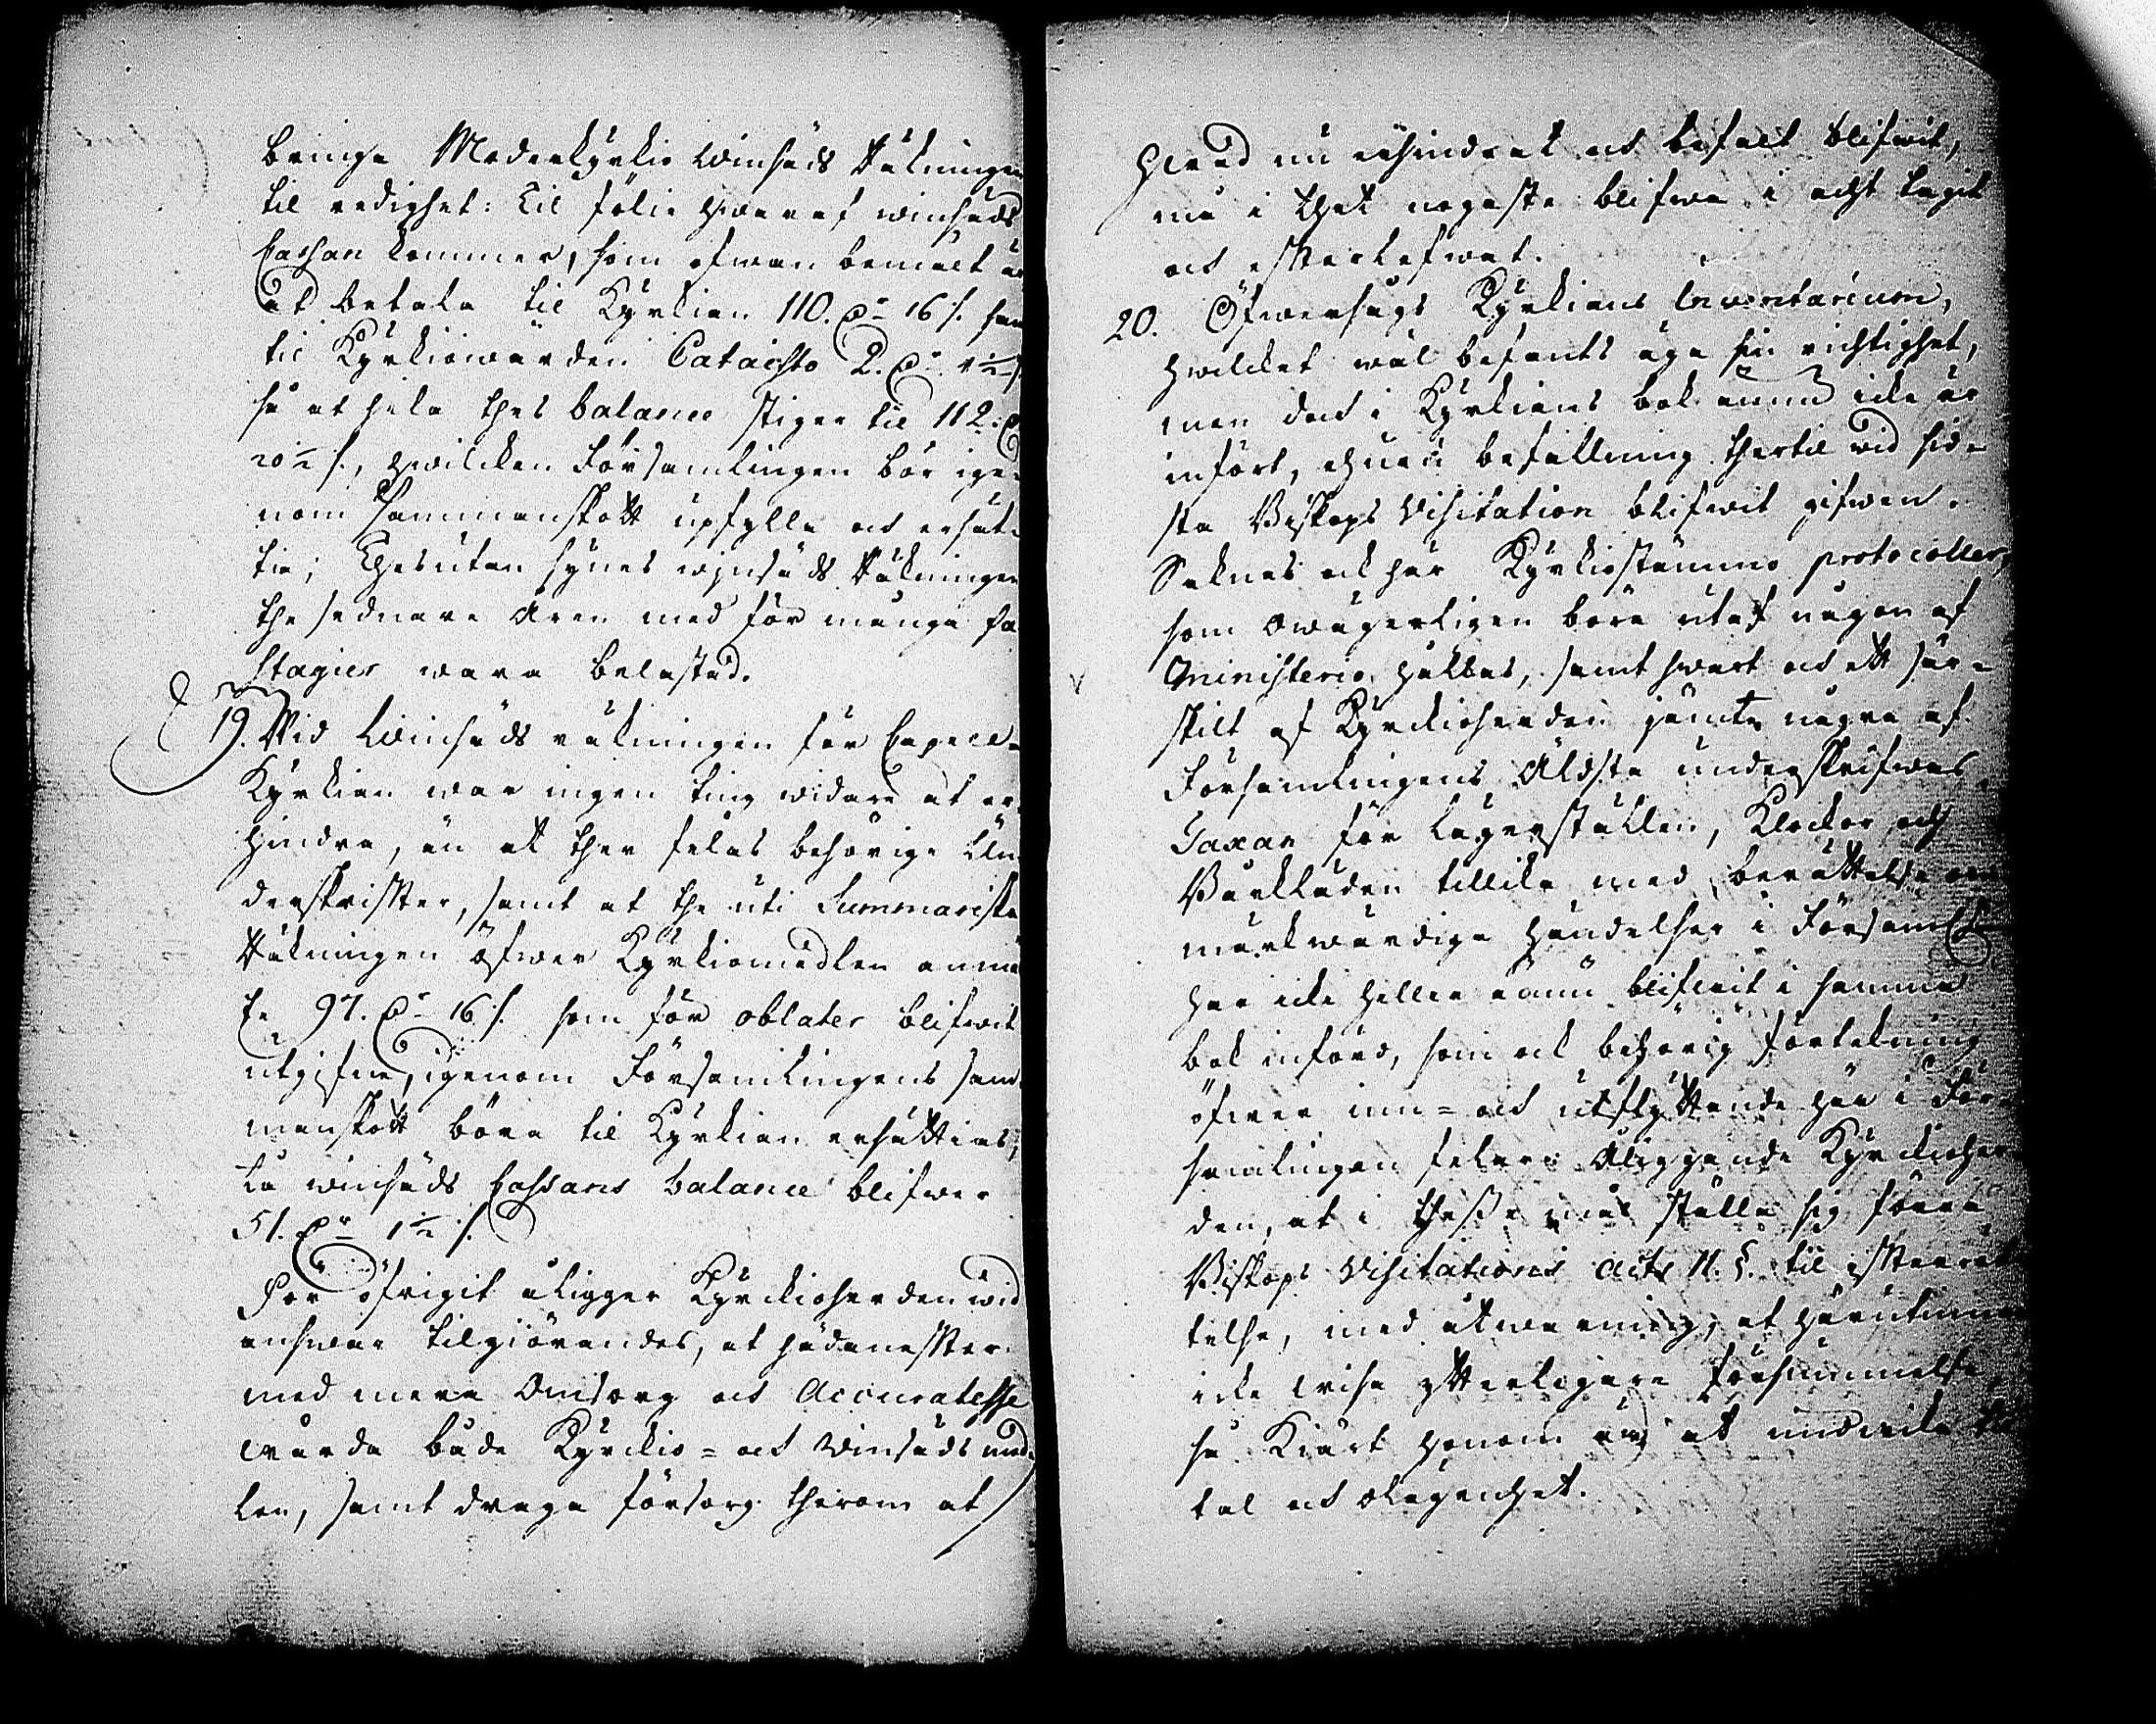 bringa Moderkyrkio Winsäds Räkningen
til redighet: Til fölie hwaraf winsäds
Cassan kommer, som ofwan bemält är
at betala til Kyrkian 110. Dr 16 /. samt
til Kyrkiowärden Cataisto 2. Dr 4½ /.
så at hela thes balance stiger til 112: Dr
20½ /., hwilcken Församlingen bör ige-
nom Sammanskott upfylla och ersät-
tia; Thesutan synes winsäds Räkningen
the sednare Åren med för många fa
stagier wara belastad.
19. Wid Winsäds räkningen för Capell-
Kyrkian war ingen ting widare at er-
hindra, än at ther felas behörige Un-
derskrifter, samt at the uti Summariska
Räkningen öfwer Kyrkiomedlen anmär
te 97. Dr 16 /. som för oblater blifwit
utgifne, igenom Församlingens sam-
manskott böra til Kyrkian ersättias,
Lä winsäds Cassans balance blifwer
51. Dr 1½ /.
För öfrigit åligger Kyrckioherden wid
answar tilgiörandes, at hädanefter
med mera Omsorg och Accuratesse
wårda både Kyrckio- och Winsäds med-
len, samt draga försorg therom at
hwad nu erhindrat och befalt blifwit,
må i thet nogaste blifwa i acht tagit
och efterlefwat.
20. Öfwersågs Kyrkians Inventarium,
hwilcket wäl befants äga sin richtighet,
men doch i Kyrkians bok ännu icke är
infört, ehuru befallning thertil wid sid-
sta Biskops Visitation blifwit gifwen.
Saknas ock här Kyrkiostämmo protocoller,
som owägerligen böra utaf någon af
Ministerio hållas, samt hwart och ett sär-
skilt af Kyrckioherden jämte några af
Församlingens Äldsta underskrifwas.
Taxan för Lägerställen, Klockor och
Bårkläden tillika med berättelse om
märkwärdiga händelser i Församl.
har icke heller ännu blifwit i samma
bok införd, som ock behörig förtekning
öfwer inn- och utflyttande här i För-
samlingen felar: Åliggande Kyrckioher-
den, at i thesse mål ställa sig förra
Biskops Visitations Acts 11. §. til efterrät
telse, med åtwarning, at härutinnan
icke wisa ytterligare försummelse,
så kiärt honom är at undwika til
tal och olägenhet.